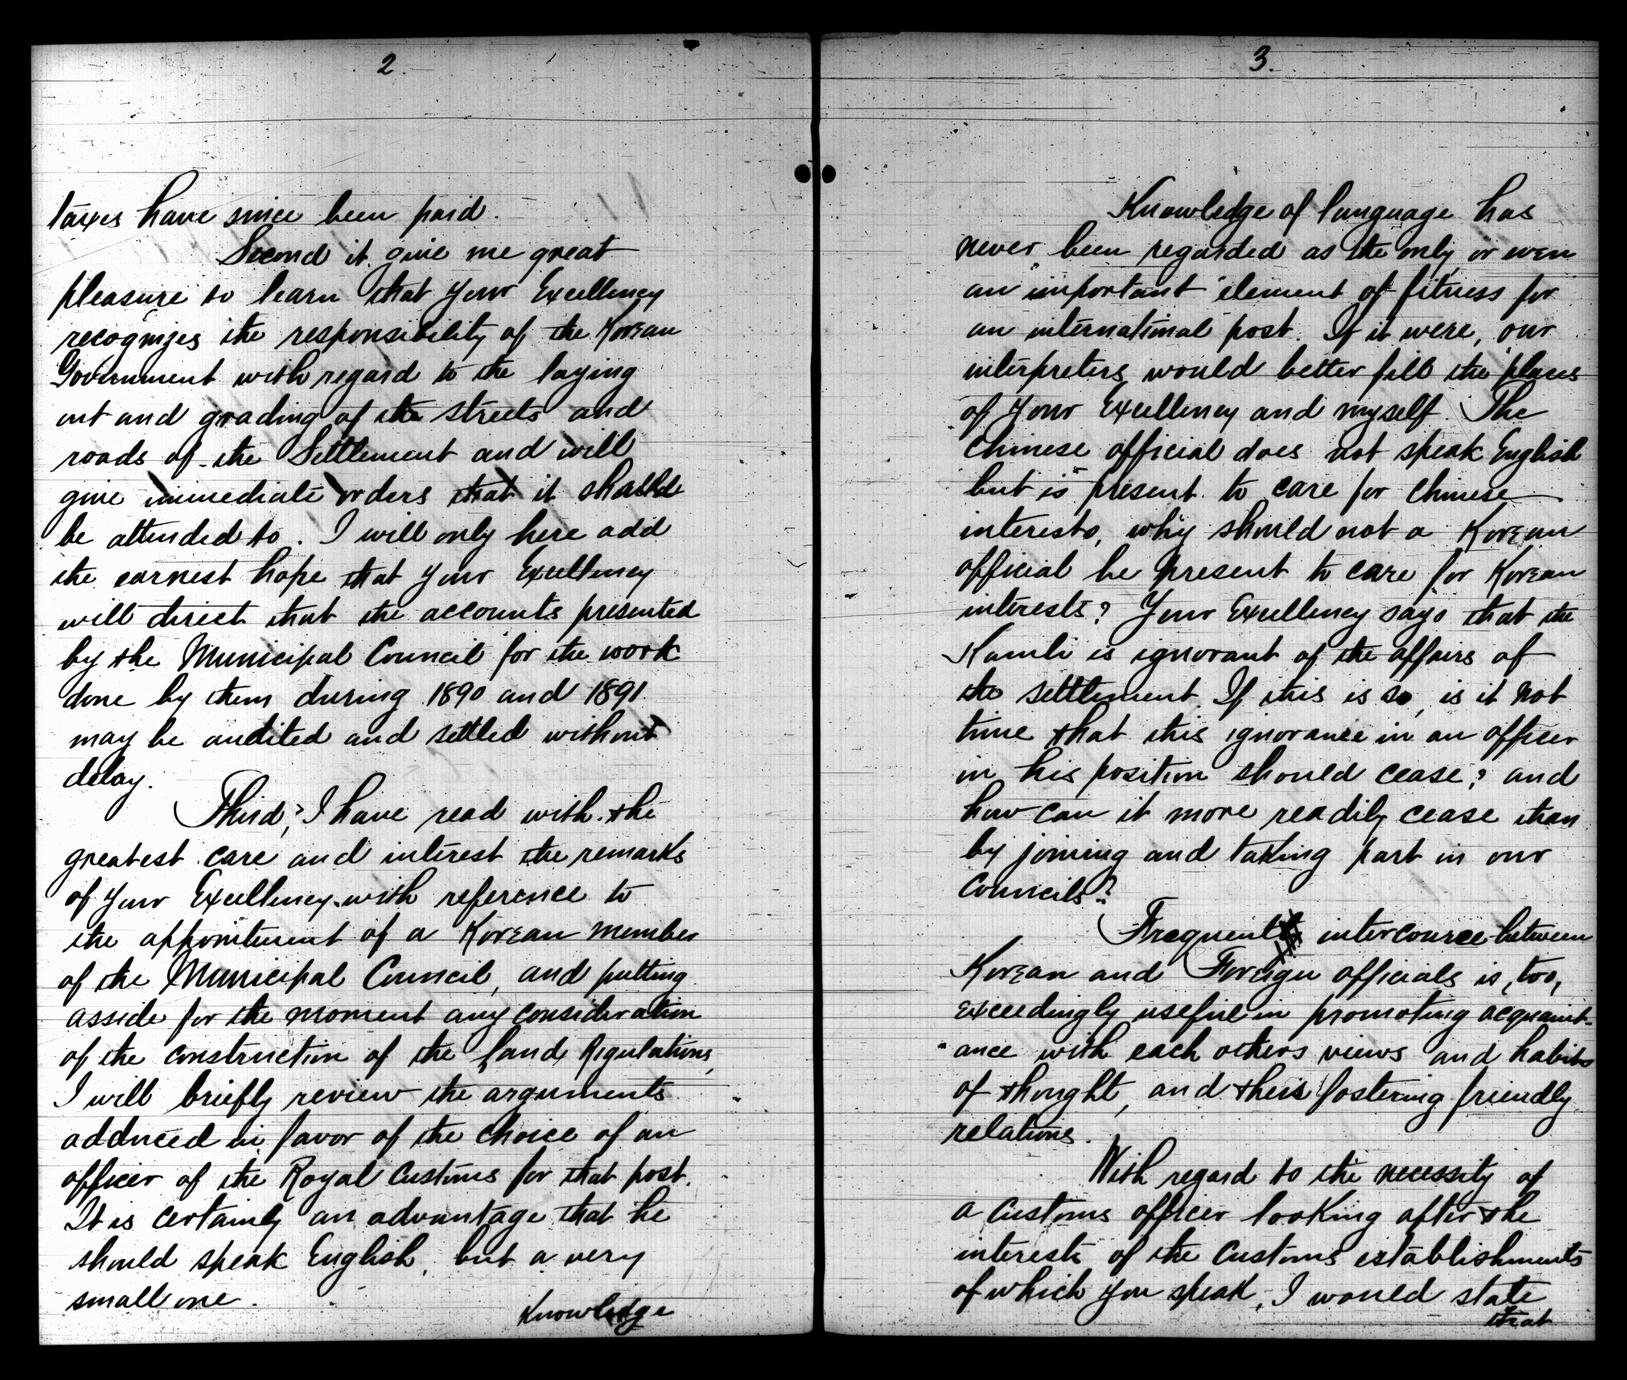 2.
taxes have since been paid.
Second it give me great
pleasure to learn that Your Excellency
recognizes the responsibility of the Korean
Government with regard to the laying
out and grading of the streets and
roads of the Settlement and will
give immediate orders that it shall
be attended to. I will only here add
the earnest hope that Your Excellency
will direct that the accounts presented
by the Municipal Council for the work
done by them during 1890 and 1891.
may be audited and settled without
delay.
Third, I have read with the
greatest care and interest the remarks
of Your Excellency with reference to
the appointment of a Korean member
of the Municipal Council, and putting
asside for the moment any consideration
of the construction of the Land Regulations,
I will briefly review the arguments
adduced in favor of the choice of an
officer of the Royal Customs for that post.
It is certainly an advantage that he
should speak English, but a very
small one.
Knowledge
3.
Knowledge of language has
never been regarded as the only or even
an important element of fitness for
an international post. If it were, our
interpreters would better fill the places
of Your Excellency and myself. The
Chinese official does not speak English
but is present to care for Chinese
interests, why should not a Korean
official be present to care for Korean
interests? Your Excellency says that the
Kamli is ignorant of the affairs of
the settlement. If this is so, is it not
time that this ignorance in an officer
in his position should cease? and
how can it more readily cease than
by joining and taking part in our
Councils?
Frequent intercourse between
Korean and Foreign officials is, too,
exceedingly useful in promoting acquaint-
ance with each others views and habits
of thought, and thus fostering friendly
relations.
With regard to the necessity of
a Customs officer looking after the
interests of the Customs establishments
of which you speak, I would state
that